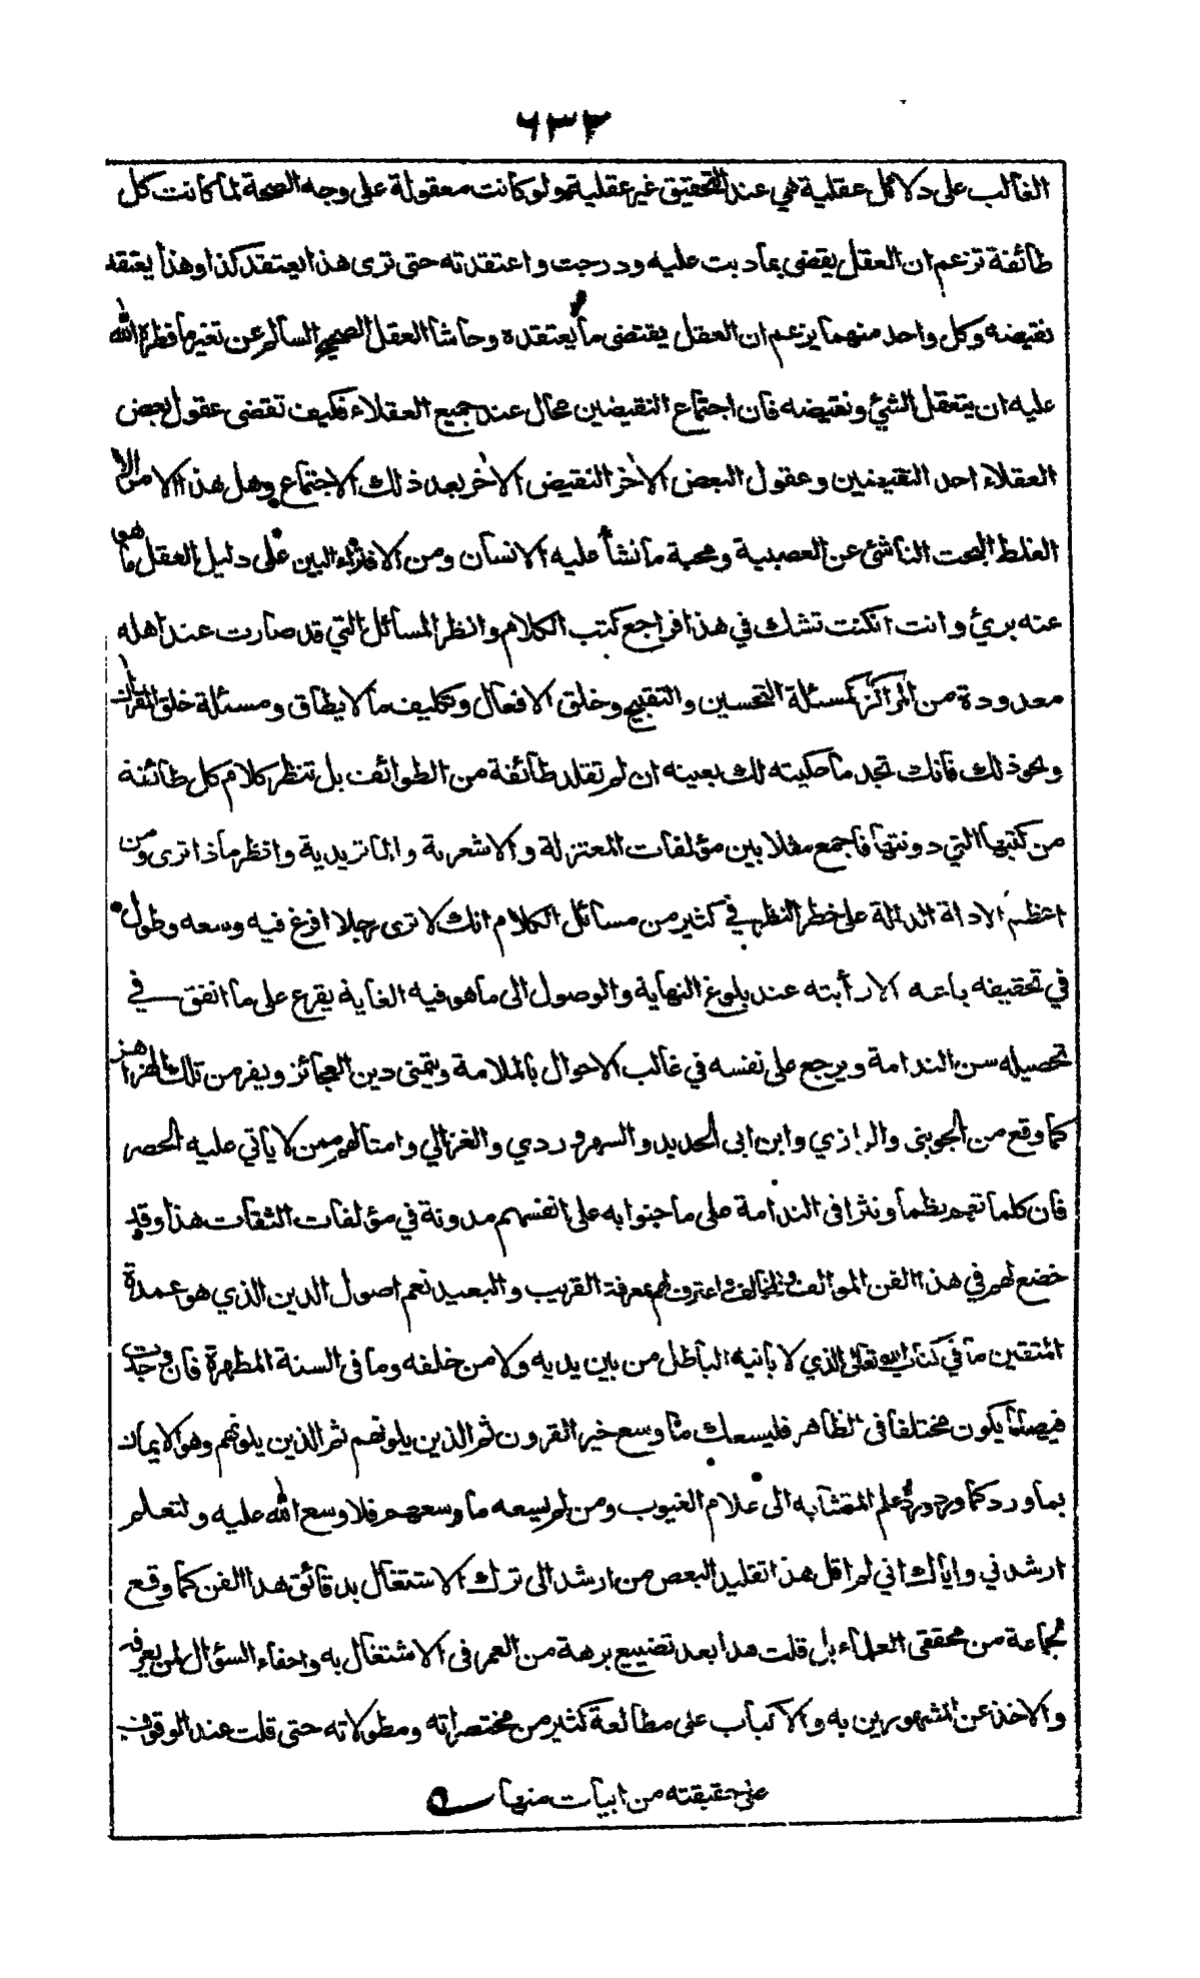 ٦٣٢
الغالب على دلائل عقلية هي عند التحقيق غير عقلية ولو كانت معقولة على وجه الصحة لما كانت كل
طائفة تزعم ان العقل يقضي بما دبت عليه ودرجت واعتقدته حتى ترى هذا يعتقد كذا وهذا يعتقد
نقيضه وكل واحد منهما يزعم ان العقل يقتضى ما يعتقده وحاشا العقل الصحيح السالم عن تغير ما فطره الله
عليه ان يتعقل الشئ ونقيضه فان اجتماع النقيضين محال عند جميع العقلاء فكيف تقضى عقول بعض
العقلاء احد النقيضين وعقول البعض الآخر النقيض الآخر بعد ذلك الاجتماع وهل هذا الامر الا
الغلط البحت الناشئ عن العصبية ومحبة ما نشأ عليه الانسان ومن الافتراء البين على دليل العقل ما هو
عنه بريئ وانت انكنت تشك في هذا فراجع كتب الكلام وانظر المسائل التي قد صارت عند اهله
معدودة من المراكز كمسئلة التحسين والتقبيح وخلق الافعال وتكليف ما لا يطاق ومسئلة خلق القرآن
ونحو ذلك فانك تجد ما حكيته لك بعينه ان لم تقلد طائفة من الطوائف بل تنظر كلام كل طائفة
من كتبها التي دونتها فاجمع مثلا بين مؤلفات المعتزلة والاشعرية والماتريدية وانظر ماذا ترى ومن
اعظم الادلة الدالة على خطر النظر في كثير من مسائل الكلام انك لا ترى رجلا افرغ فيه وسعه وطول
في تحقيقه باعه الا رأيته عند بلوغ النهاية والوصول الى ما هو فيه الغاية يقرع على ما انفق في
تحصيله سن الندامة ويرجع على نفسه في غالب الاحوال بالملامة ويتمنى دين العجائز ويفر من تلك الهزاهز
كما وقع من الجويني والرازي وابن ابى الحديد والسهروردي والغزالي وامثالهم ممن لا يأتي عليه الحصر
فان كلماتهم نظما ونثرا فى الندامة على ما جنوا به على انفسهم مدونة في مؤلفات الثقات هذا وقد
خضع لهم في هذا الفن الموالف والمخالف واعترف لهم بمعرفة القريب والبعيد نعم اصول الدين الذي هو عمدة
المتقين ما في كتاب الله تعالى الذي لا يأتيه الباطل من بين يديه ولا من خلفه وما فى السنة المطهرة فان وجدت
فيهما ما يكون مختلفا فى الظاهر فليسعك ما وسع خير القرون ثم الذين يلونهم ثم الذين يلونهم وهو الايمان
بما ورد كما ورد ورد علم المتشابه الى علام الغيوب ومن لم يسعه ما وسعهم فلا وسع الله عليه ولتعلم
ارشدني واياك اني لم اقل هذا تقليدا لبعض من ارشد الى ترك الاشتغال بدقائق هذا الفن كما وقع
لجماعة من محققى العلماء بل قلت هذا بعد تضييع برهة من العمر فى الاشتغال به واحفاء السؤال لمن يعرفه
والاخذ عن المشهورين به والاكباب على مطالعة كثير من مختصراته ومطولاته حتى قلت عند الوقوف
على حقيقته من ابيات منها